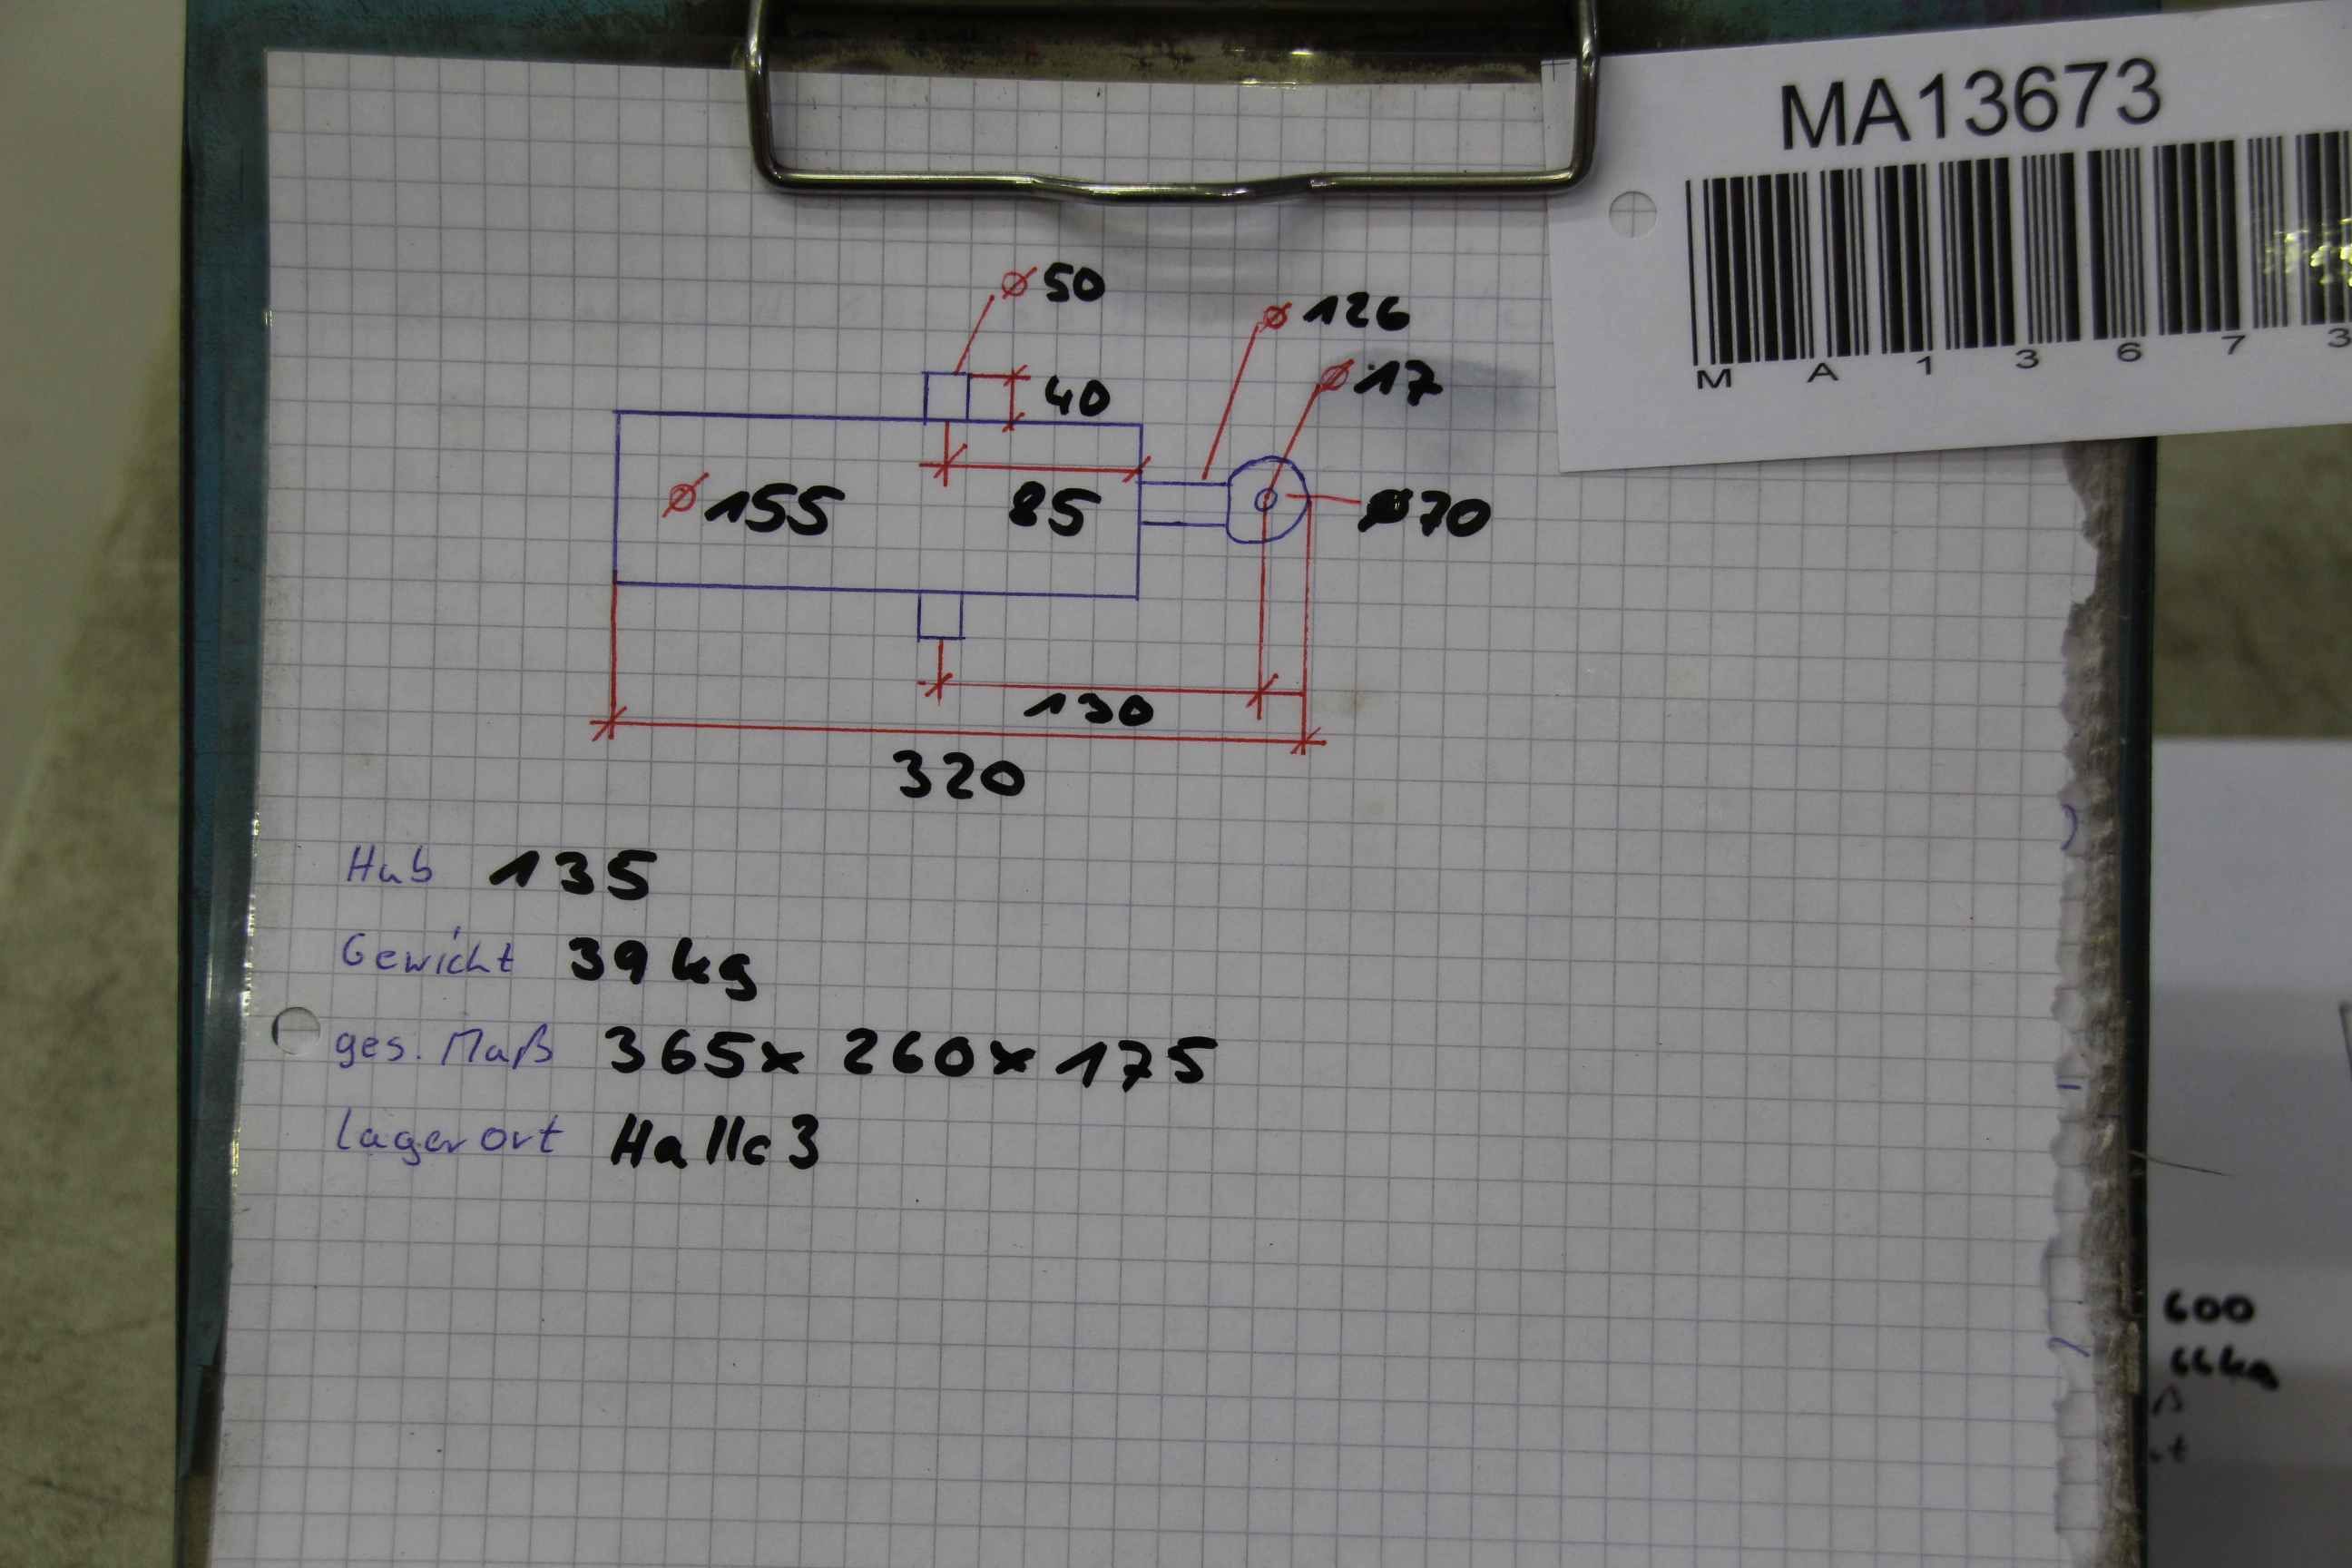 MA13673
M A 1 3 6 7 3
ø 50
ø 126
ø 17
40
ø 155
85
ø70
130
320
Hub 135
Gewicht 39 kg
ges. Maß 365 x 260 x 175
Lagerort Halle 3
600
66kg